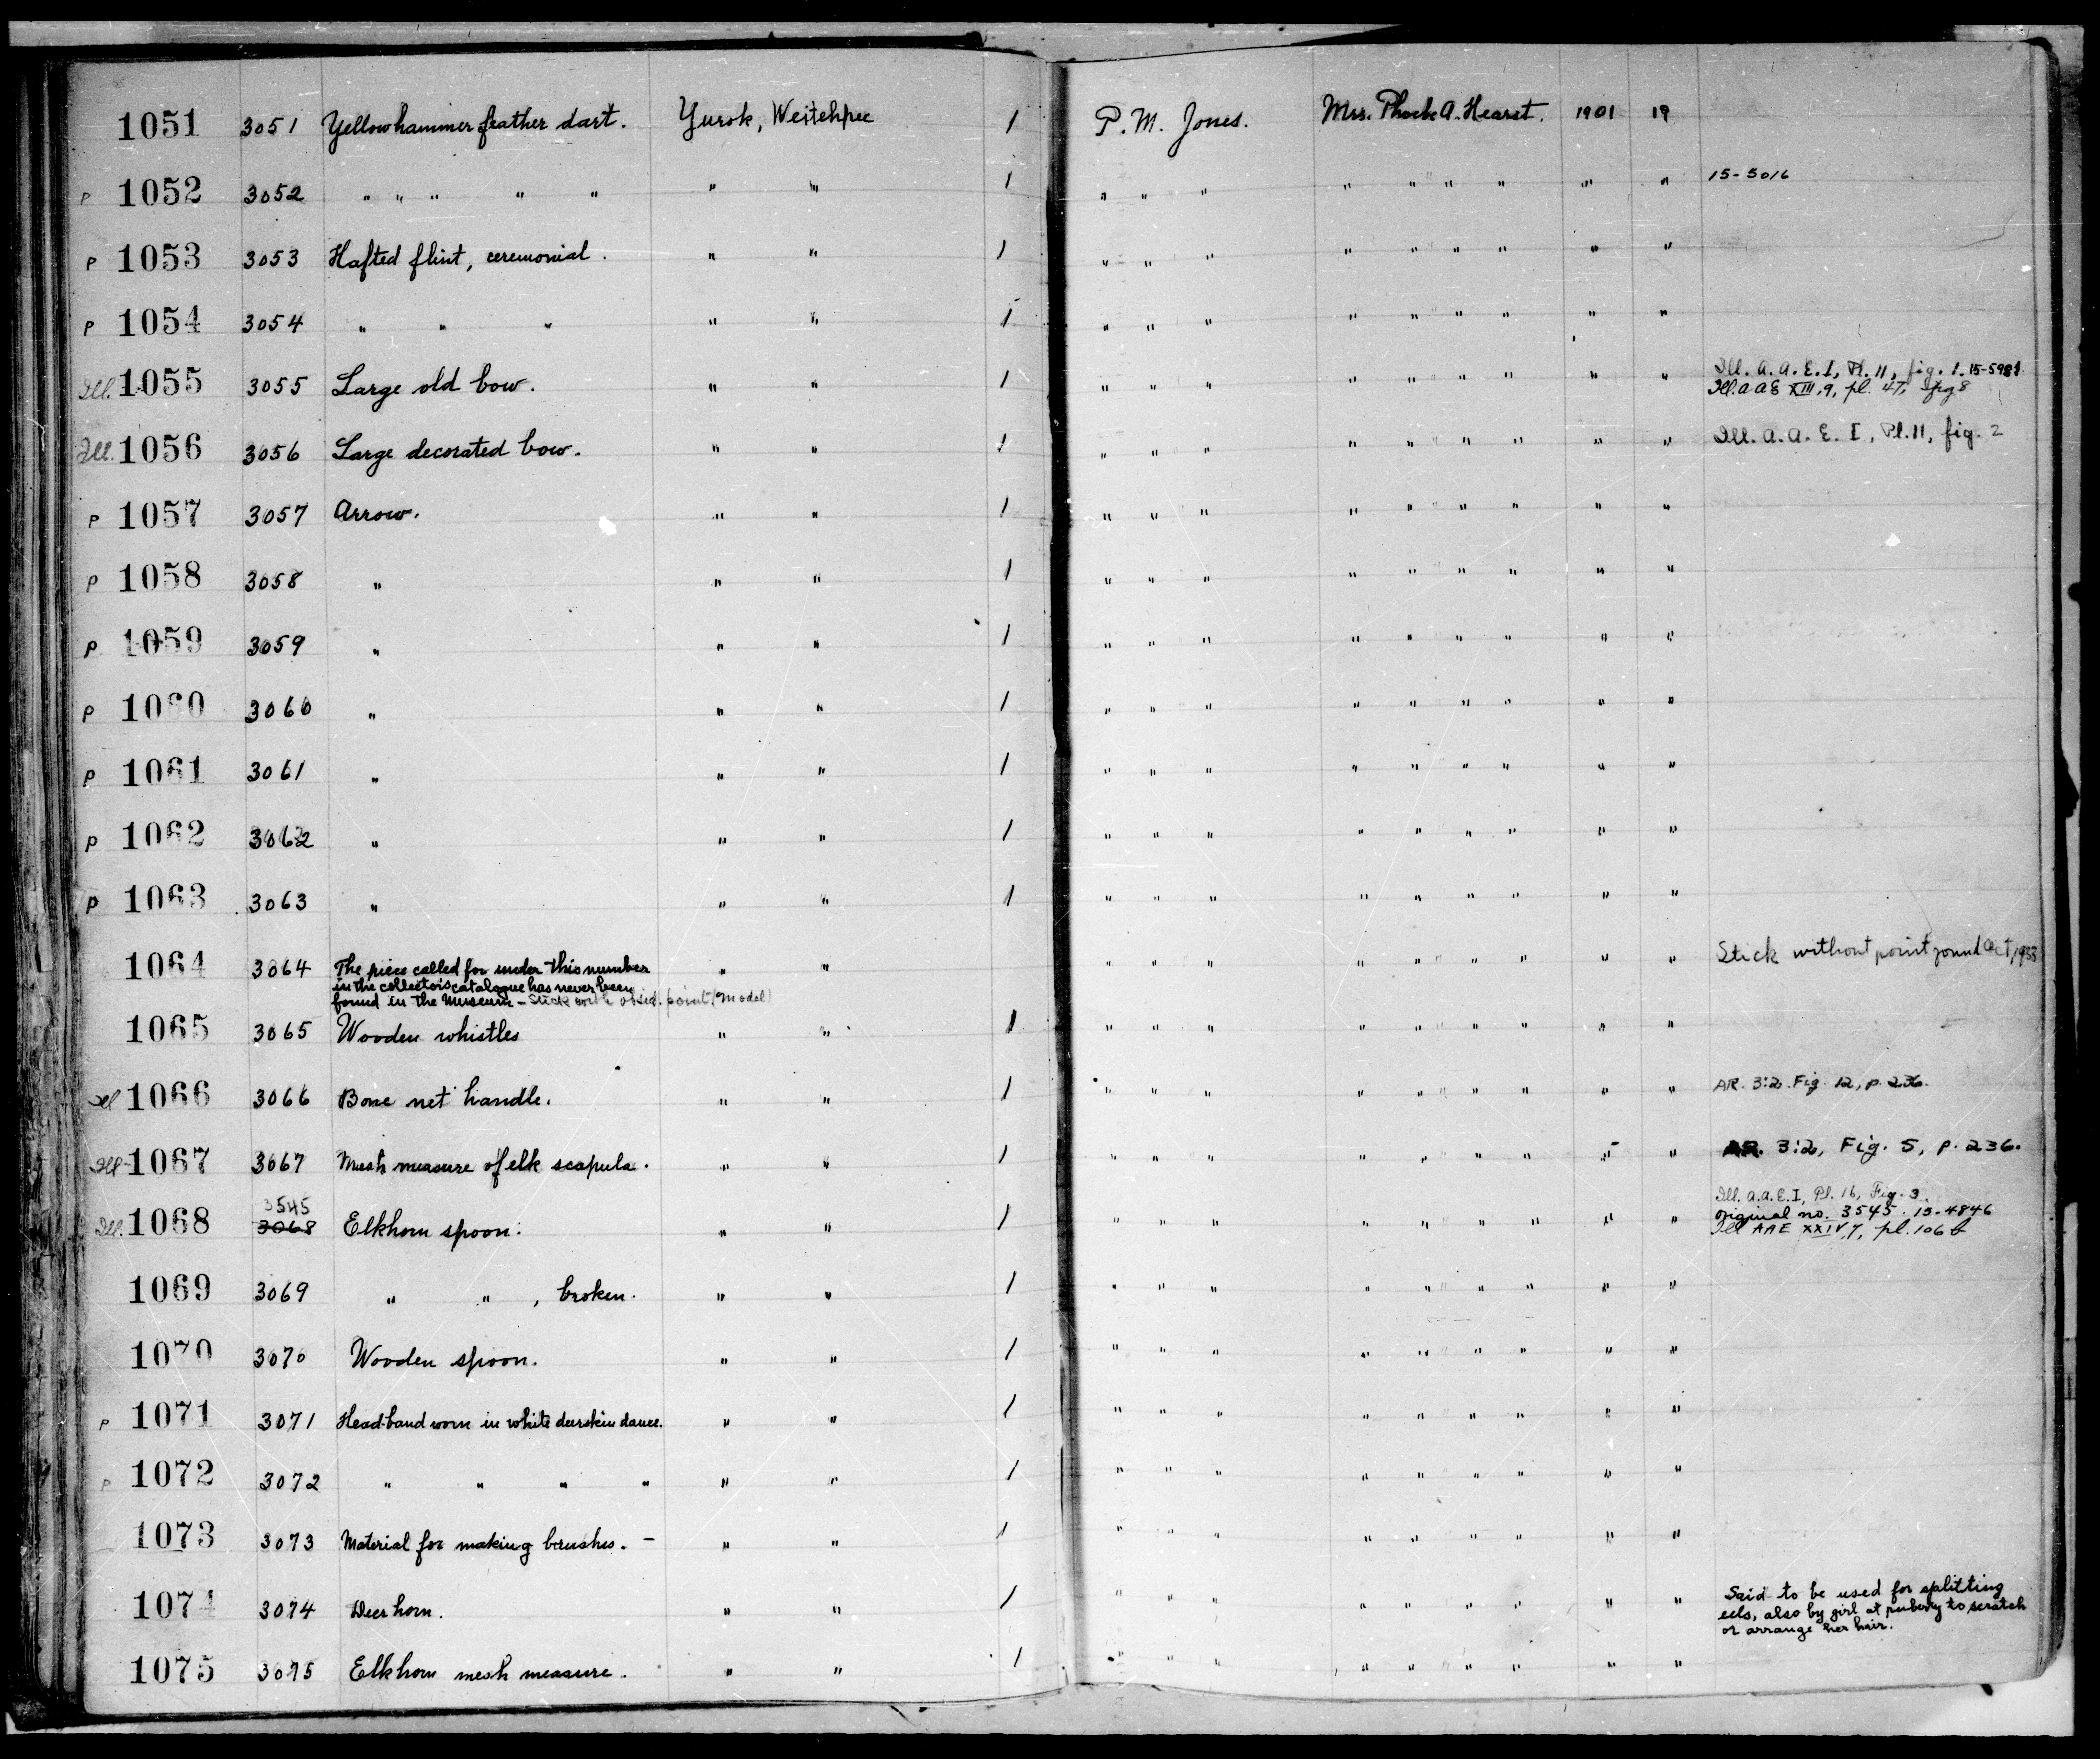 1051 3051 Yellowhammer feather dart. Yurok, Weitchpec 1 P. M. Jones. Mrs. Phoebe A. Hearst. 1901 19
P 1052 3052 " " " " " " " 1 " " " " " " " " " 15-5016
P 1053 3053 Hafted flint, ceremonial. " " 1 " " " " " " " " "
P 1054 3054 " " " " " 1 " " " " " " " " "
Ill. 1055 3055 Large old bow. " " 1 " " " " " " " " " Ill. A. A. E. I, Pl. 11, fig. 1. 15-5981
Ill. A A E XIII, 9, pl. 47, fig 8
Ill. 1056 3056 Large decorated bow. " " 1 " " " " " " " " " Ill. A. A. E. I, Pl. 11, fig. 2
P 1057 3057 Arrow. " " 1 " " " " " " " " "
P 1058 3058 " " " 1 " " " " " " " " "
P 1059 3059 " " " 1 " " " " " " " " "
P 1060 3060 " " " 1 " " " " " " " " "
P 1061 3061 " " " 1 " " " " " " " " "
P 1062 3062 " " " 1 " " " " " " " " "
P 1063 3063 " " " 1 " " " " " " " " "
1064 3064 The piece called for under this number " " " " " " " " " " " Stick without point found Oct, 1933
in the collector's catalogue has never been
found in the Museum - Stick with obsid. point (model)
1065 3065 Wooden whistles " " 1 " " " " " " " " "
Ill 1066 3066 Bone net handle. " " 1 " " " " " " " " " AR. 3:2. Fig. 12, p. 236.
Ill 1067 3067 Mesh measure of elk scapula. " " 1 " " " " " " " " " AR. 3:2, Fig. 5, p. 236.
3545
Ill. 1068 3068 Elkhorn spoon. " " 1 " " " " " " " " " Ill. A.A.E. I, Pl. 16, Fig. 3.
original no. 3545. 15-4846
Ill AAE XXIV, 7, pl. 106 b
1069 3069 " " , broken. " " 1 " " " " " " " " "
1070 3070 Wooden spoon. " " 1 " " " " " " " " "
P 1071 3071 Head-band worn in white deerskin dance. " " 1 " " " " " " " " "
P 1072 3072 " " " " " " 1 " " " " " " " " "
1073 3073 Material for making brushes. - " " 1 " " " " " " " " "
1074 3074 Deer horn. " " 1 " " " " " " " " " Said to be used for splitting
eels, also by girl at puberty to scratch
or arrange her hair.
1075 3075 Elkhorn mesh measure. " " 1 " " " " " " " " "